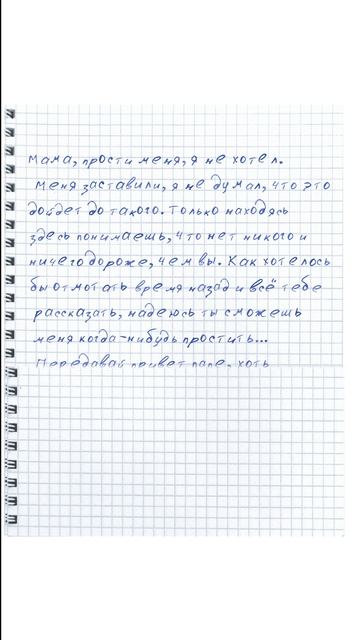 Мама, прости меня, я не хотел.
Меня заставили, я не думал, что это
дойдет до такого. Только находясь
здесь понимаешь, что нет никого и
ничего дороже, чем вы. Как хотелось
бы отмотать время назад и всё тебе
рассказать, надеюсь ты сможешь
меня когда-нибудь простить...
Передавай привет папе. хоть